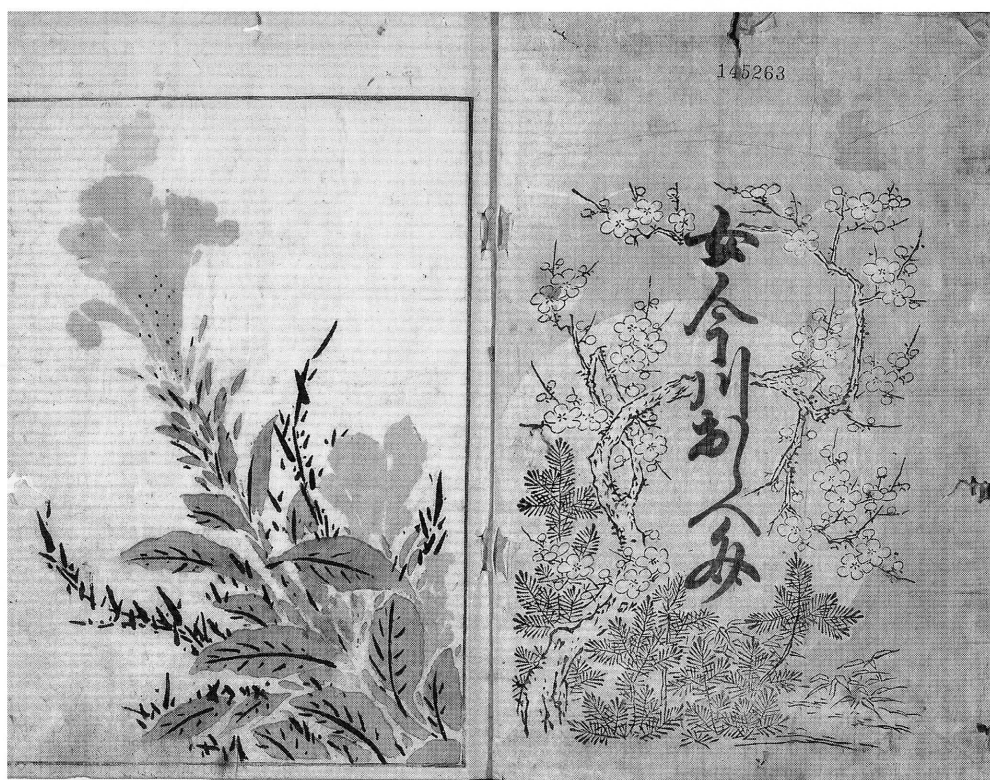 145263
女今川おしへ文